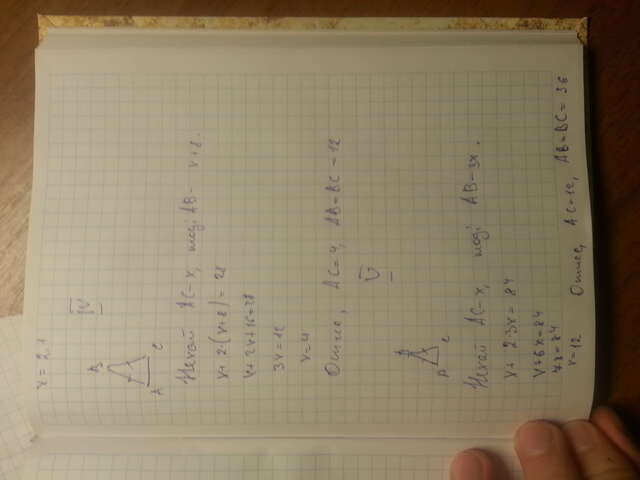 x = 21
IV
B
A C
Нехай AC - x, тоді AB - x+8.
x + 2·(x+8) = 28
x + 2x + 16 = 28
3x = 12
x = 4
Отже, AC = 4, AB = BC = 12
V
B
A C
Нехай AC - x, тоді AB - 3x.
x + 2·3x = 84
x + 6x = 84
7x = 84
x = 12 Отже, AC = 12, AB = BC = 36